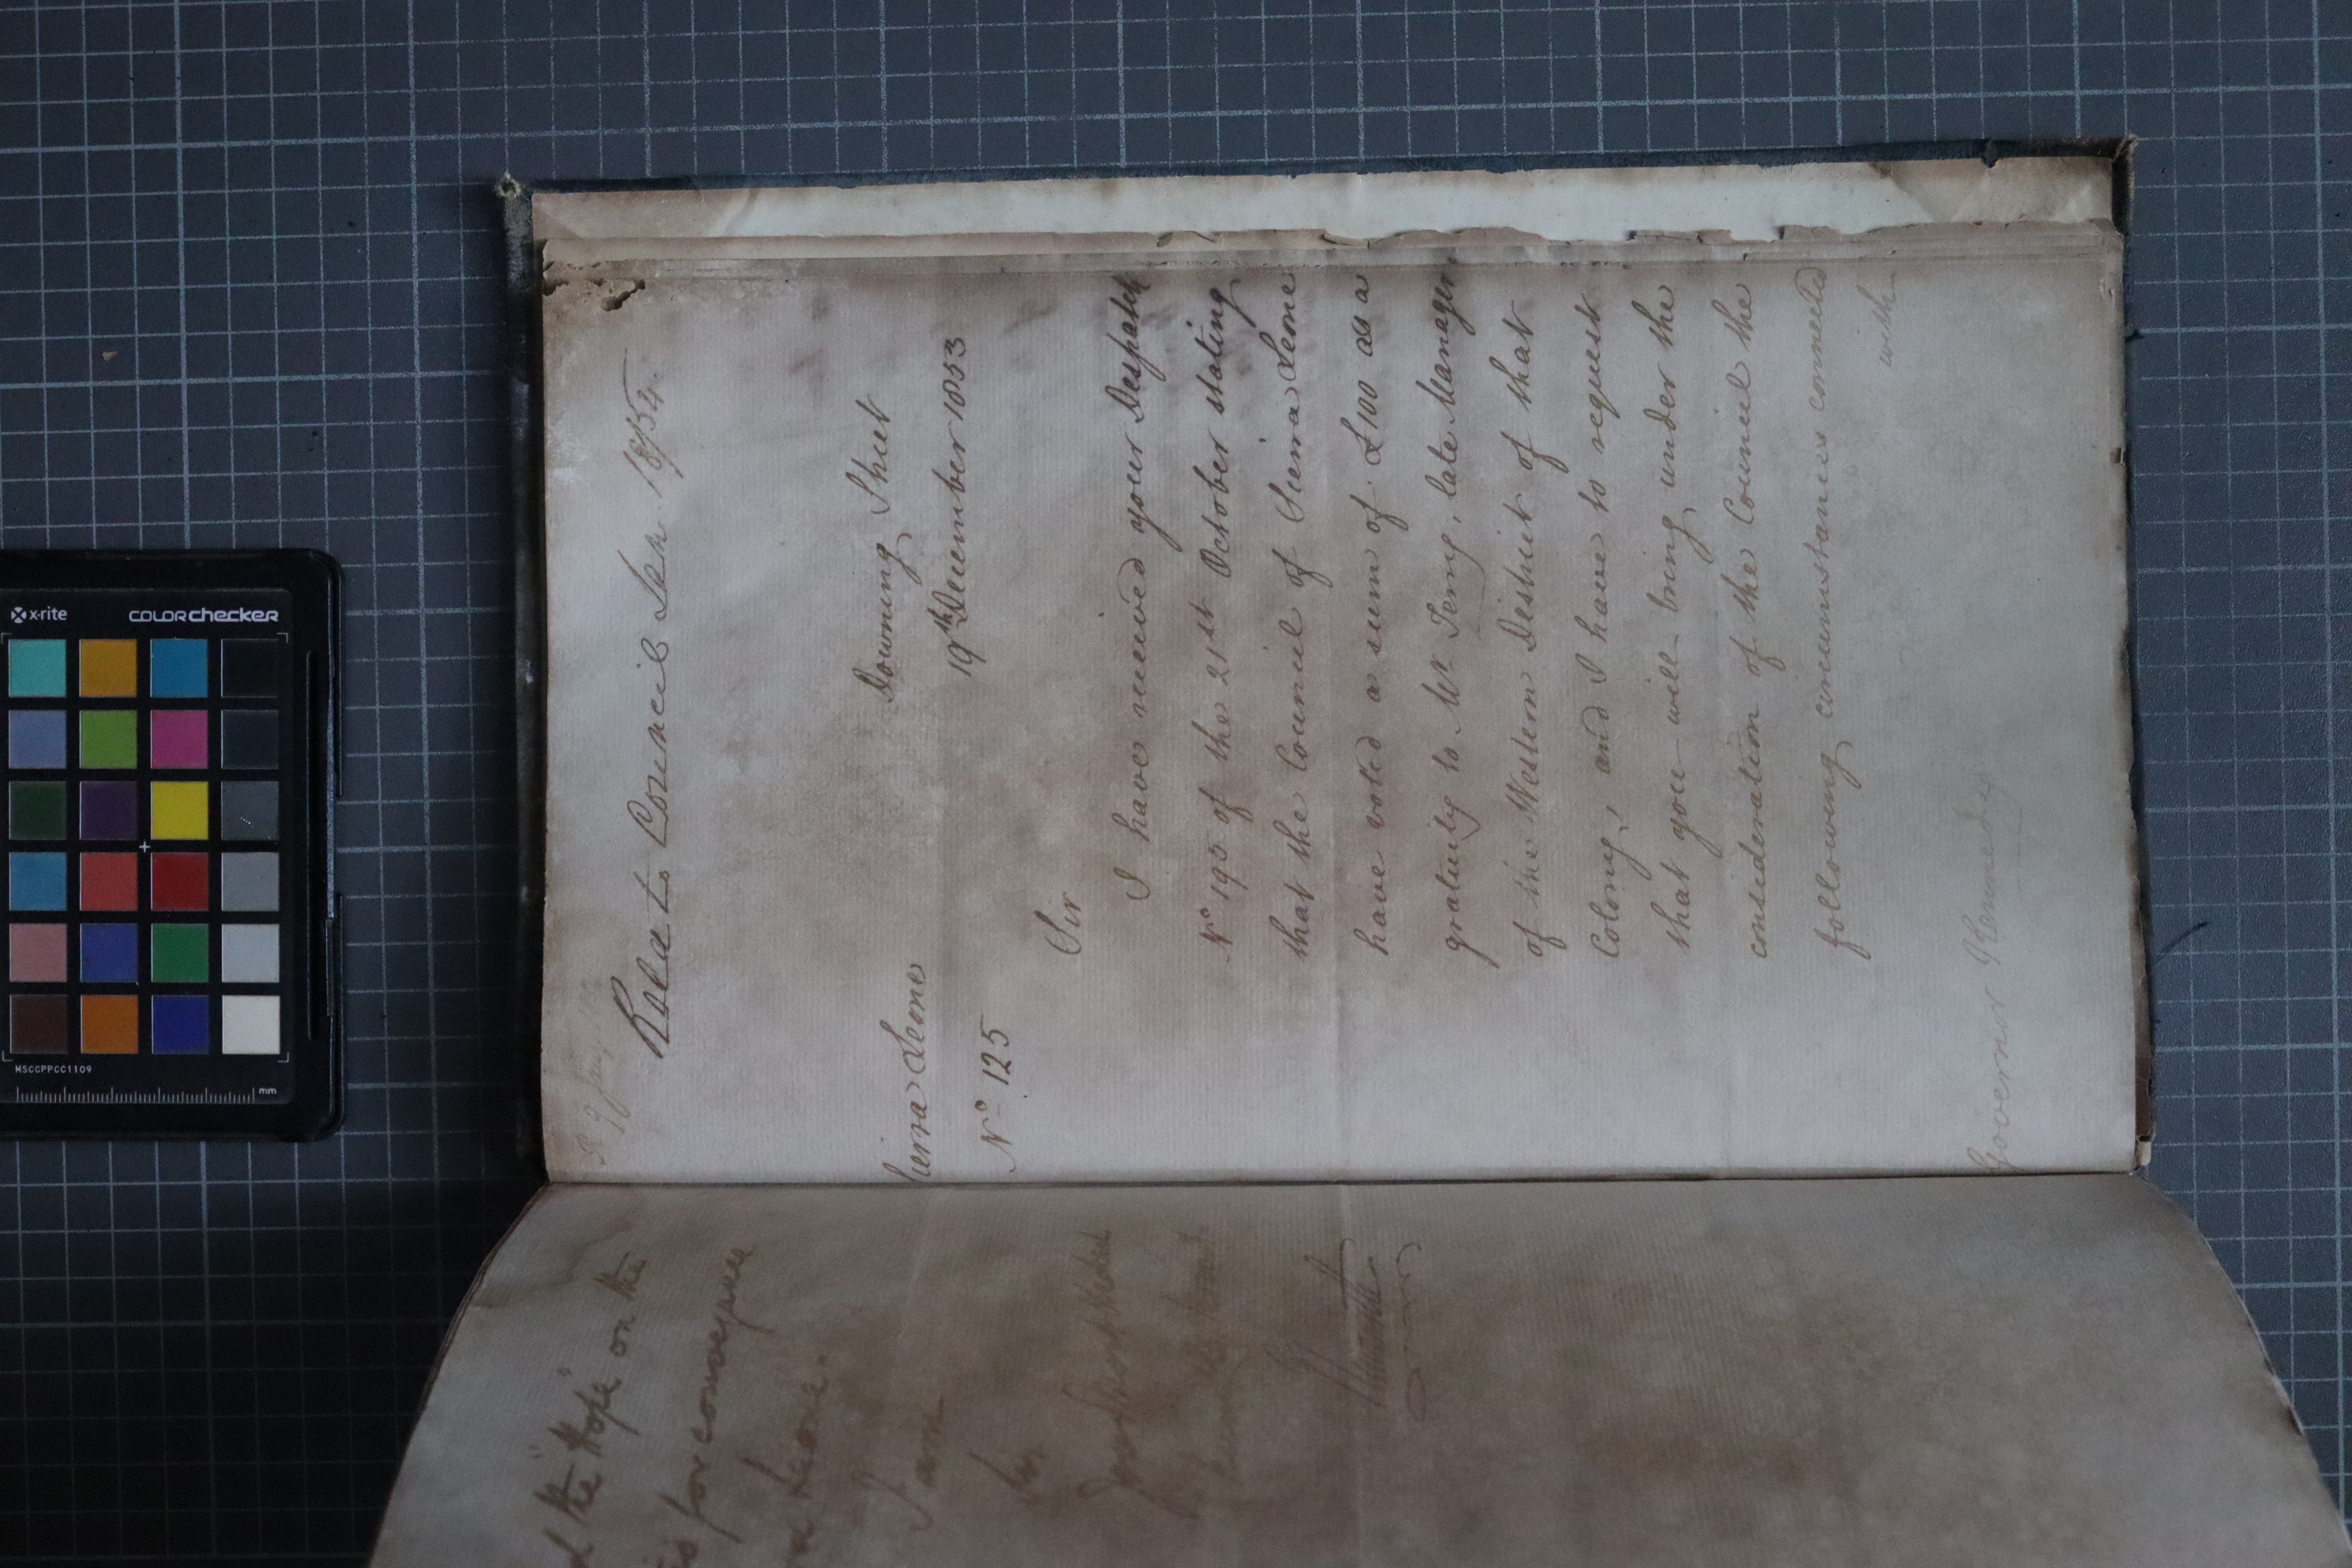 Read to Council Jan 18/54.
Sierra Leone
Downing Street
Nº 125
19th December 1853
Sir
I have received your Despatch
Nº 195 of the 21st October stating
that the Council of Sierra Leone
have voted a sum of £100 as a
gratuity to Mr Terry, late Manager
of the Western District of that
Colony, and I have to request
that you will bring under the
consideration of the Council the
following circumstances connected
with
Governor Kennedy
the "Hope" on the
for conveyance
Leone.
I am
Sir
Your
x-rite
colorchecker
MSCCPPCC1109
mm